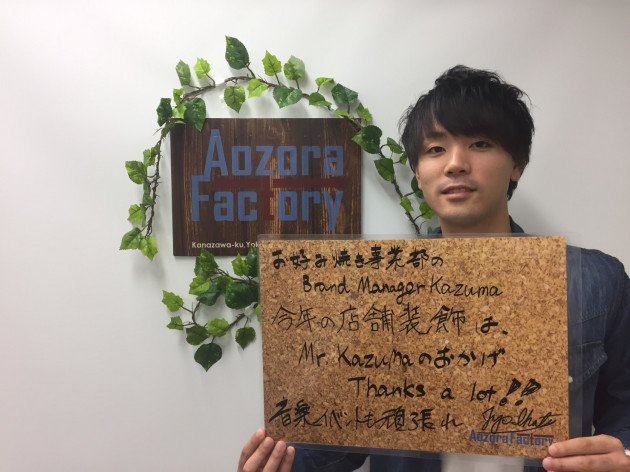 Aozora
Factory
Kanazawa-ku,Yok
お好み焼き事業部の
Brand Manager Kazuma
今年の店舗装飾は、
Mr. Kazumaのおかげ
Thanks a lot!!
音楽イベントも頑張れ
Aozora Factory